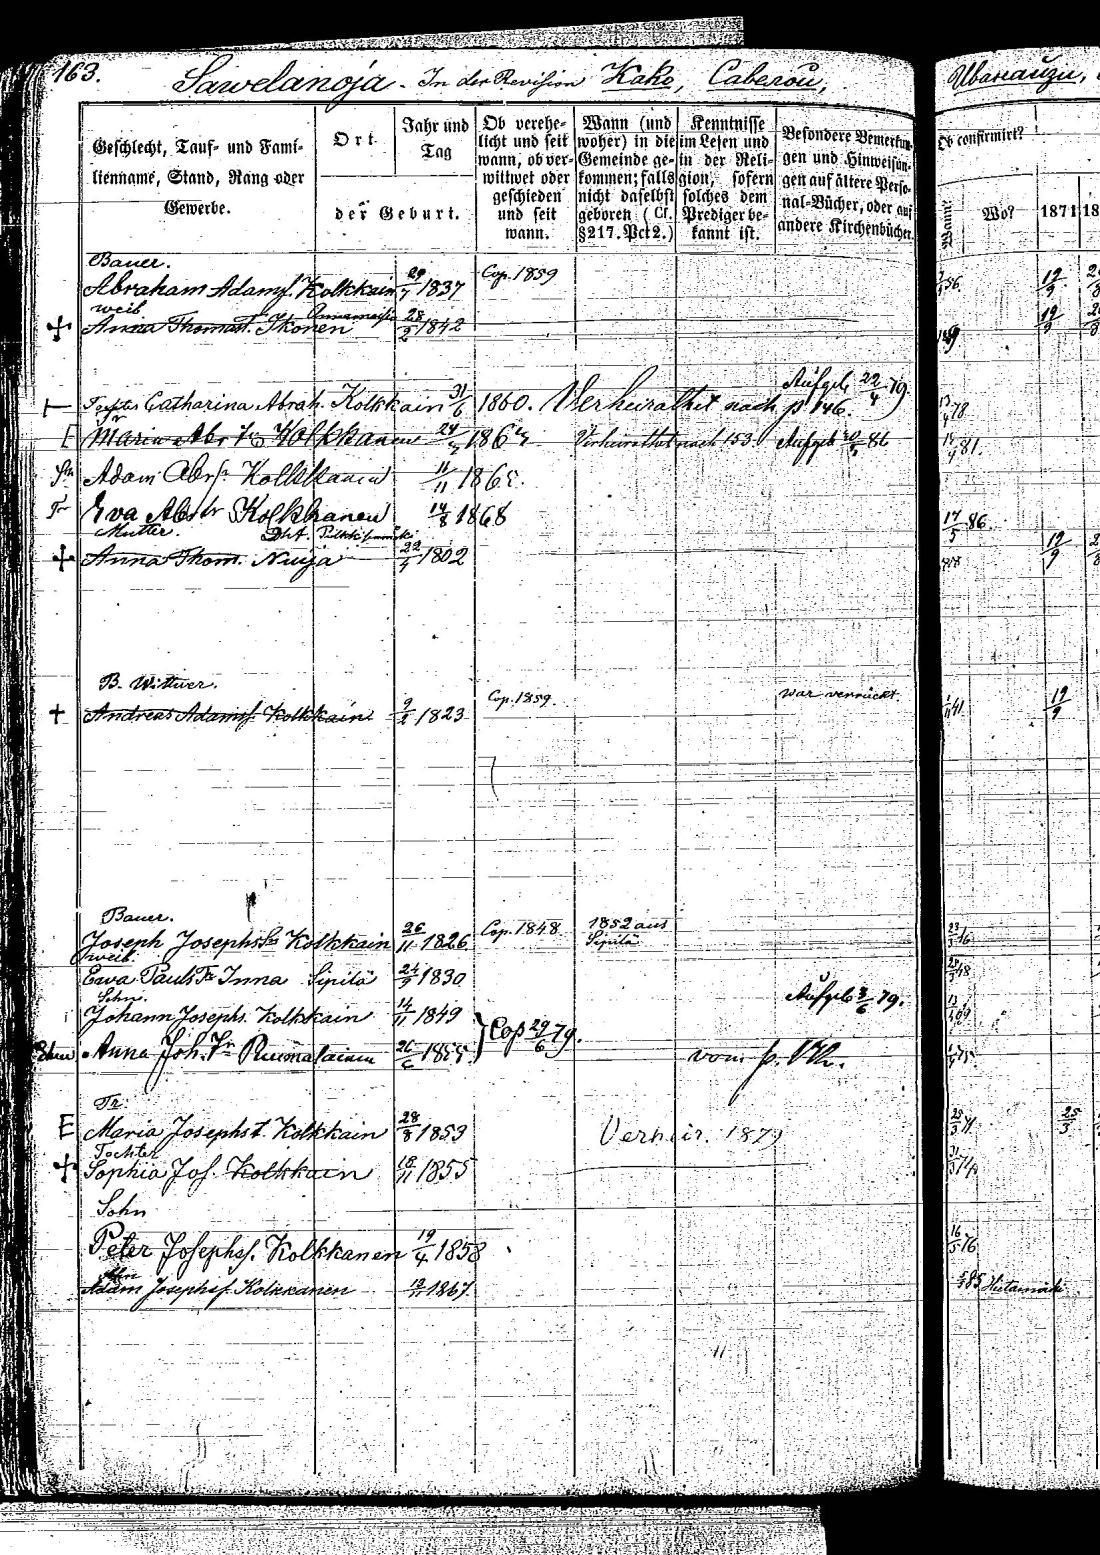 163. Sawelanoja - In der Revision Kake, Саверои,
Geschlecht, Tauf- und Fami-
lienname, Stand, Rang oder
Gewerbe.
Ort
Jahr und
Tag
der Geburt.
Ob verehe-
licht und seit
wann, ob ver-
wittwet oder
geschieden
und seit
wann.
Wann (und
woher) in die
Gemeinde ge-
kommen; falls
nicht daselbst
geboren (Cf.
§217. Pct 2.)
Kenntnisse
im Lesen und
in der Reli-
gion, sofern
solches dem
Prediger be-
kannt ist.
Besondere Bemerkun-
gen und Hinweisun-
gen auf ältere Perso-
nal-Bücher, oder auf
andere Kirchenbücher.
Ob confirmirt?
Wann?
Wo?
1871
Bauer.
Abraham Adams. Kolkkain 29/7 1837 Cop. 1859
weib
Anna Thomast. Ikonen 28/2 1842
Aufgeb. 22/4 79.
Tochter Catharina Abrah. Kolkkain 31/6 1860. Verheirathet nach p 146.
E Maria Abr Tr Kolkkanen 24/2 1862 Verheirathet nach 153. Aufgeb 20/4 86
Sn Adam Abrs. Kolkkanen 11/11 1865.
Tr Eva Abr tr Kolkkanen 14/8 1868
17/5 86
Mutter.
Anna Thom. Nuija 22/4 1802
B. Wittwer.
Andreas Adams. Kolkkain 9/2 1823 Cop. 1859. war verrückt.
Bauer.
Joseph Josephs Sn Kolkkain 26/11 1826 Cop. 1848 1852 aus
Sipilä
weib.
Ewa Pauls Tr Inna Sipilä 24/9 1830
Sohn.
Aufgeb 3/6 79.
Johann Josephs. Kolkkain 14/11 1849
Cop 29/6 79.
Anna Joh. Tr Ruumalainen 26/6 1855 vom p.
Tr.
E Maria Josephst. Kolkkain 28/8 1853 Verheir. 1879
Tochter
Sophia Jos. Kolkkain 18/11 1855
Sohn
Peter Josephs. Kolkkanen 19/4 1858
16/5 76
Adam Josephs. Kolkkanen 12/11 1867.
85 Hietamäki